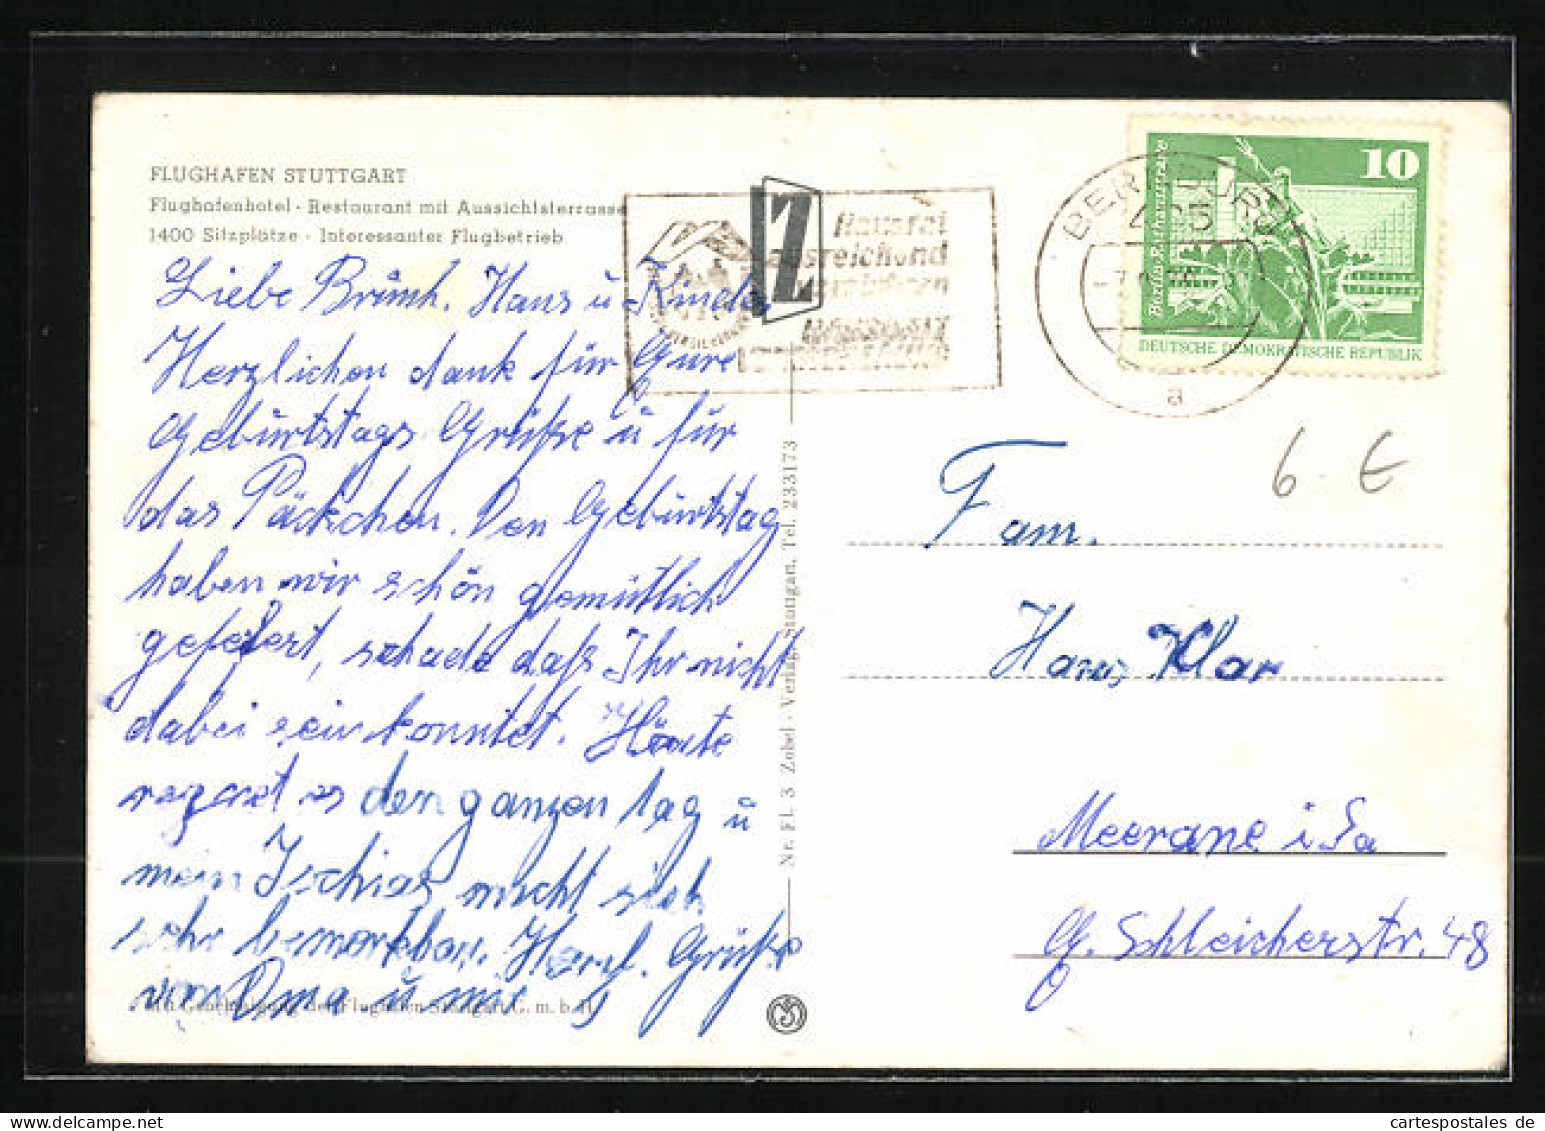 FLUGHAFEN STUTTGART
Flughafenhotel · Restaurant mit Aussichtsterrasse
1400 Sitzplätze · Interessanter Flugbetrieb
Liebe Brünh. Hans u. Kinder
Herzlichen dank für Eure
Geburtstags Grüße u für
das Päckchen. Den Geburtstag
haben wir schön gemütlich
gefeiert, schade daß Ihr nicht
dabei sein konntet. Heute
regnet es den ganzen Tag u
mein Ischias macht sich
sehr bemerkbar. Herzl. Grüße
von Oma u
Mit Genehmigung der Flughafen Stuttgart G. m. b. H.
Nr. Fl. 3 Zobel · Verlag, Stuttgart, Tel. 233173
Z
Hausrat
ausreichend
versichern
BERNBURG
a
10
Berlin, Rathausstrasse
DEUTSCHE DEMOKRATISCHE REPUBLIK
6 €
Fam.
Hans Klar
Meerane i. Sa
G. Schleicherstr. 48
cartespostales.de